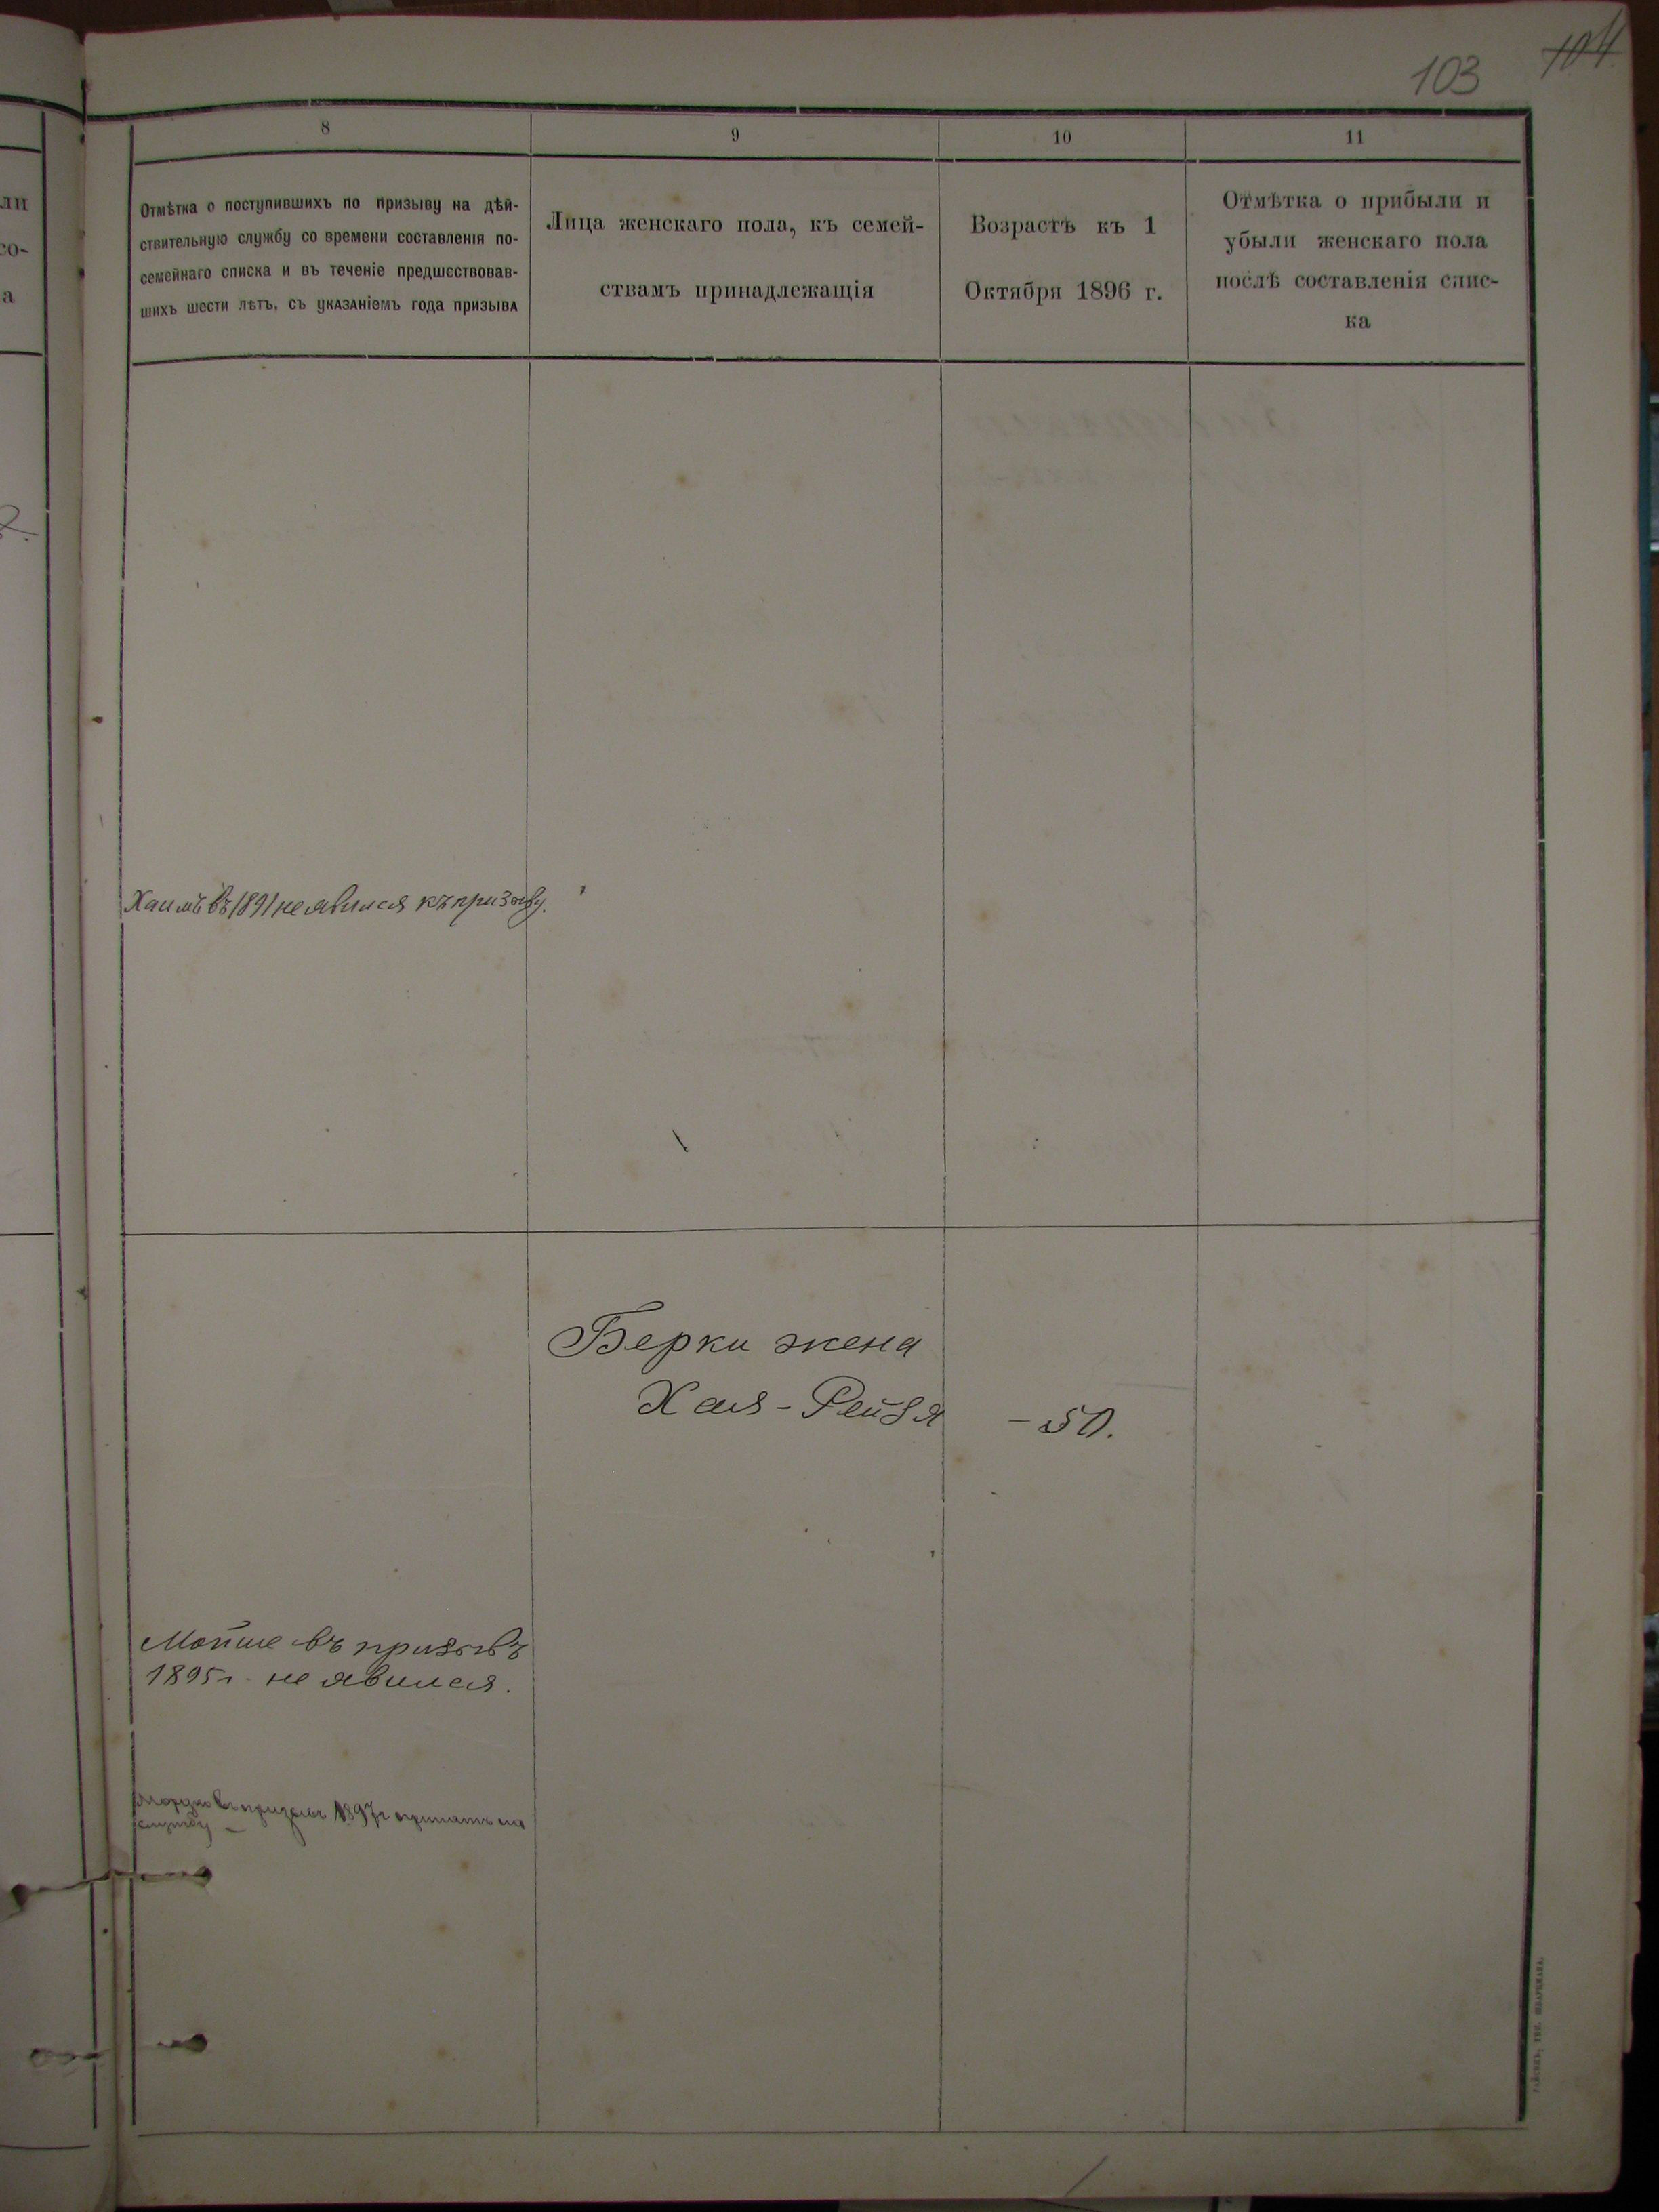 103 104
8 9 10 11
Отмѣтка о поступившихъ по призыву на дѣй-
ствительную службу со времени составленія по-
семейнаго списка и въ теченіе предшествовав-
шихъ шести лѣтъ, съ указаніемъ года призыва
Лица женскаго пола, къ семей-
ствамъ принадлежащія
Возрастъ къ 1
Октября 1896 г.
Отмѣтка о прибыли и
убыли женскаго пола
послѣ составленія спис-
ка
Хаимъ въ 1891 не явился къ призыву.
Берки жена
Хая-Рейзя - 50.
Мойше въ призывъ
1895 г. не явился.
въ призывъ 1897 г принятъ на
службу